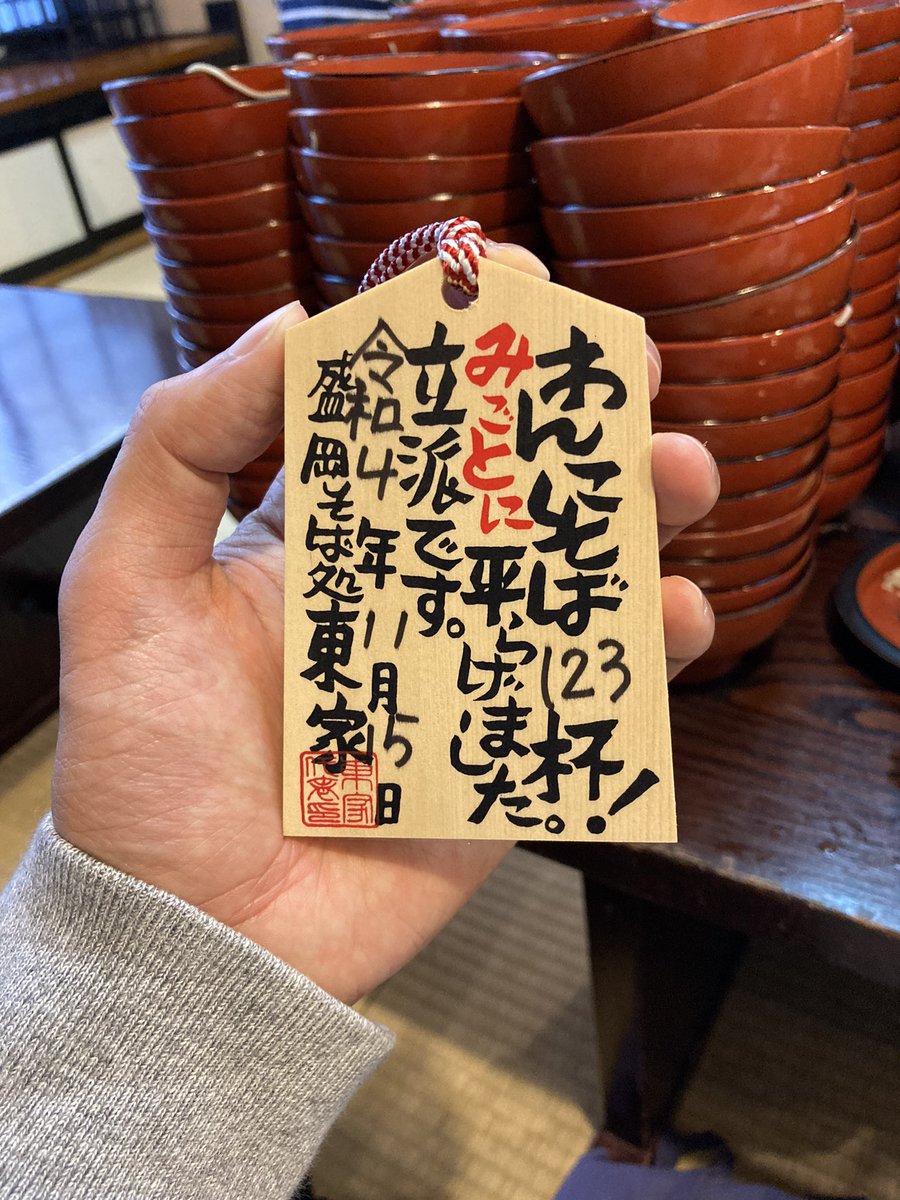 わんこそば123杯!
みごとに平らげました。
立派です。
令和4年11月15日
盛岡そば処東家